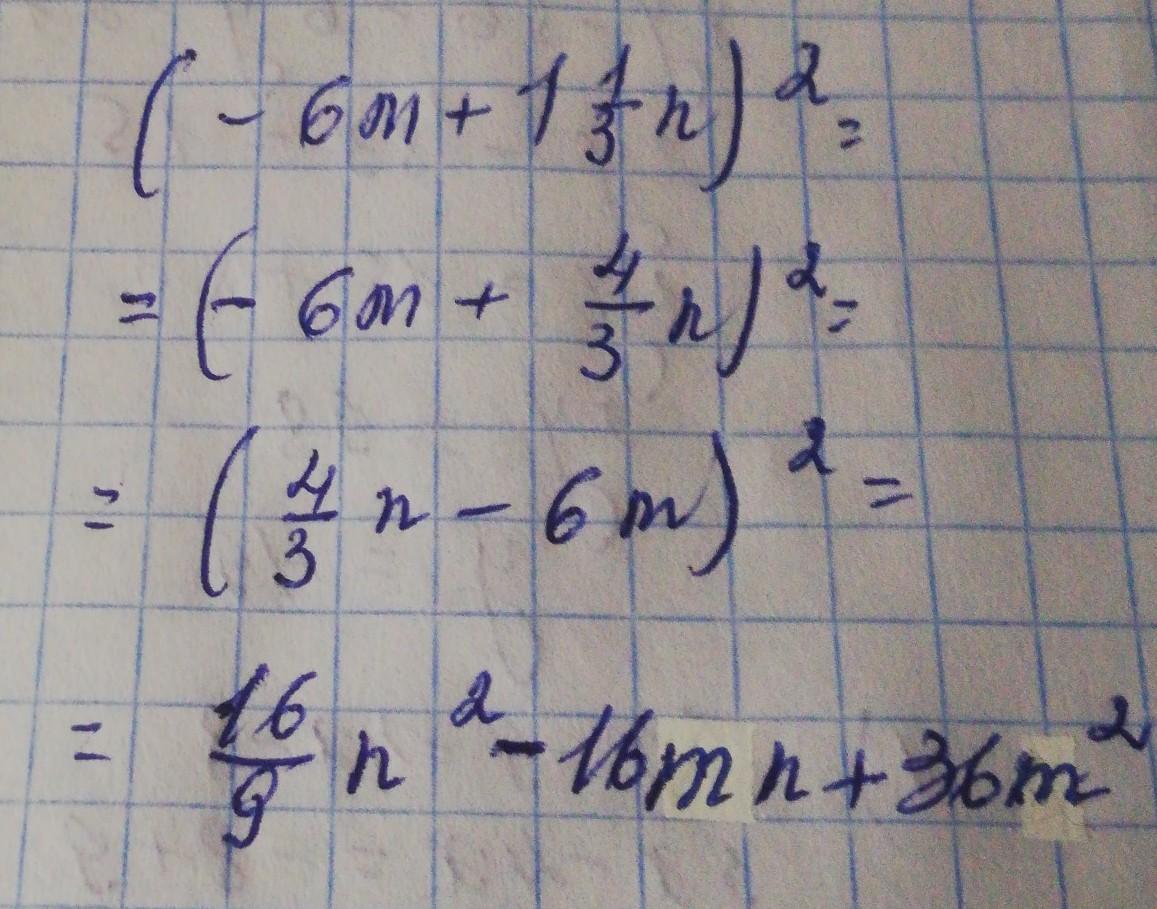 (- 6m + 1 1/3 n)² =
= (- 6m + 4/3 n)² =
= (4/3 n - 6m)² =
= 16/9 n² - 16mn + 36m²